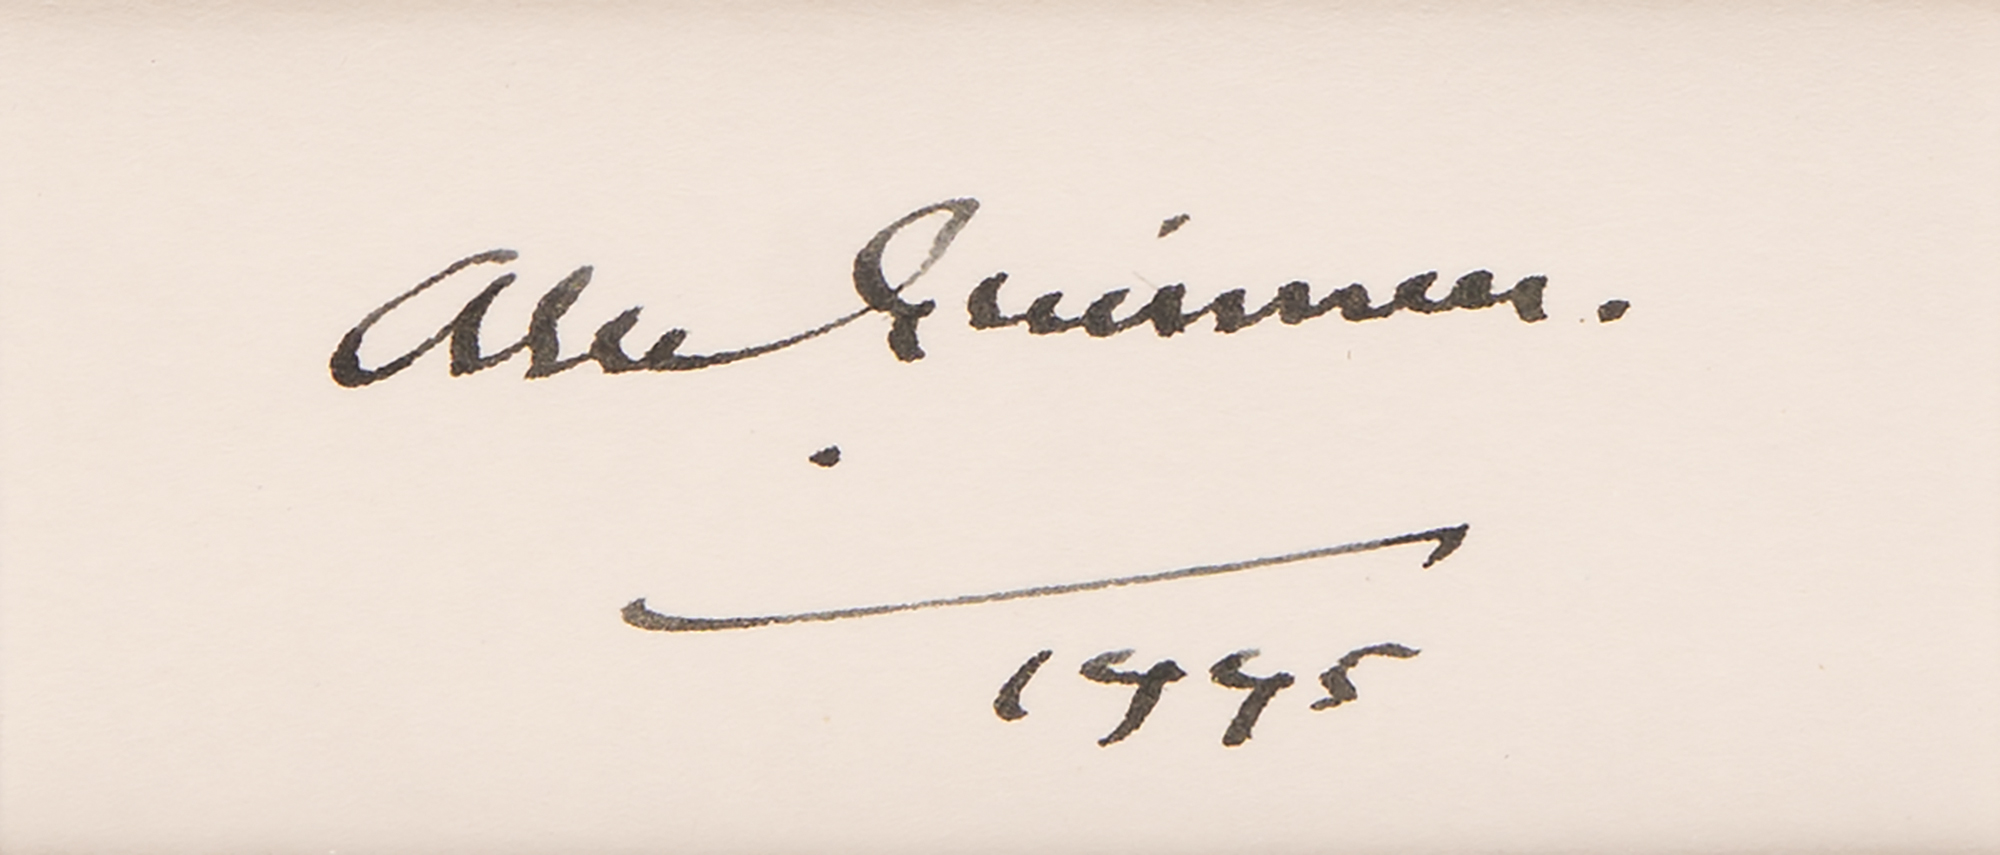 Alec Guinness.
1995